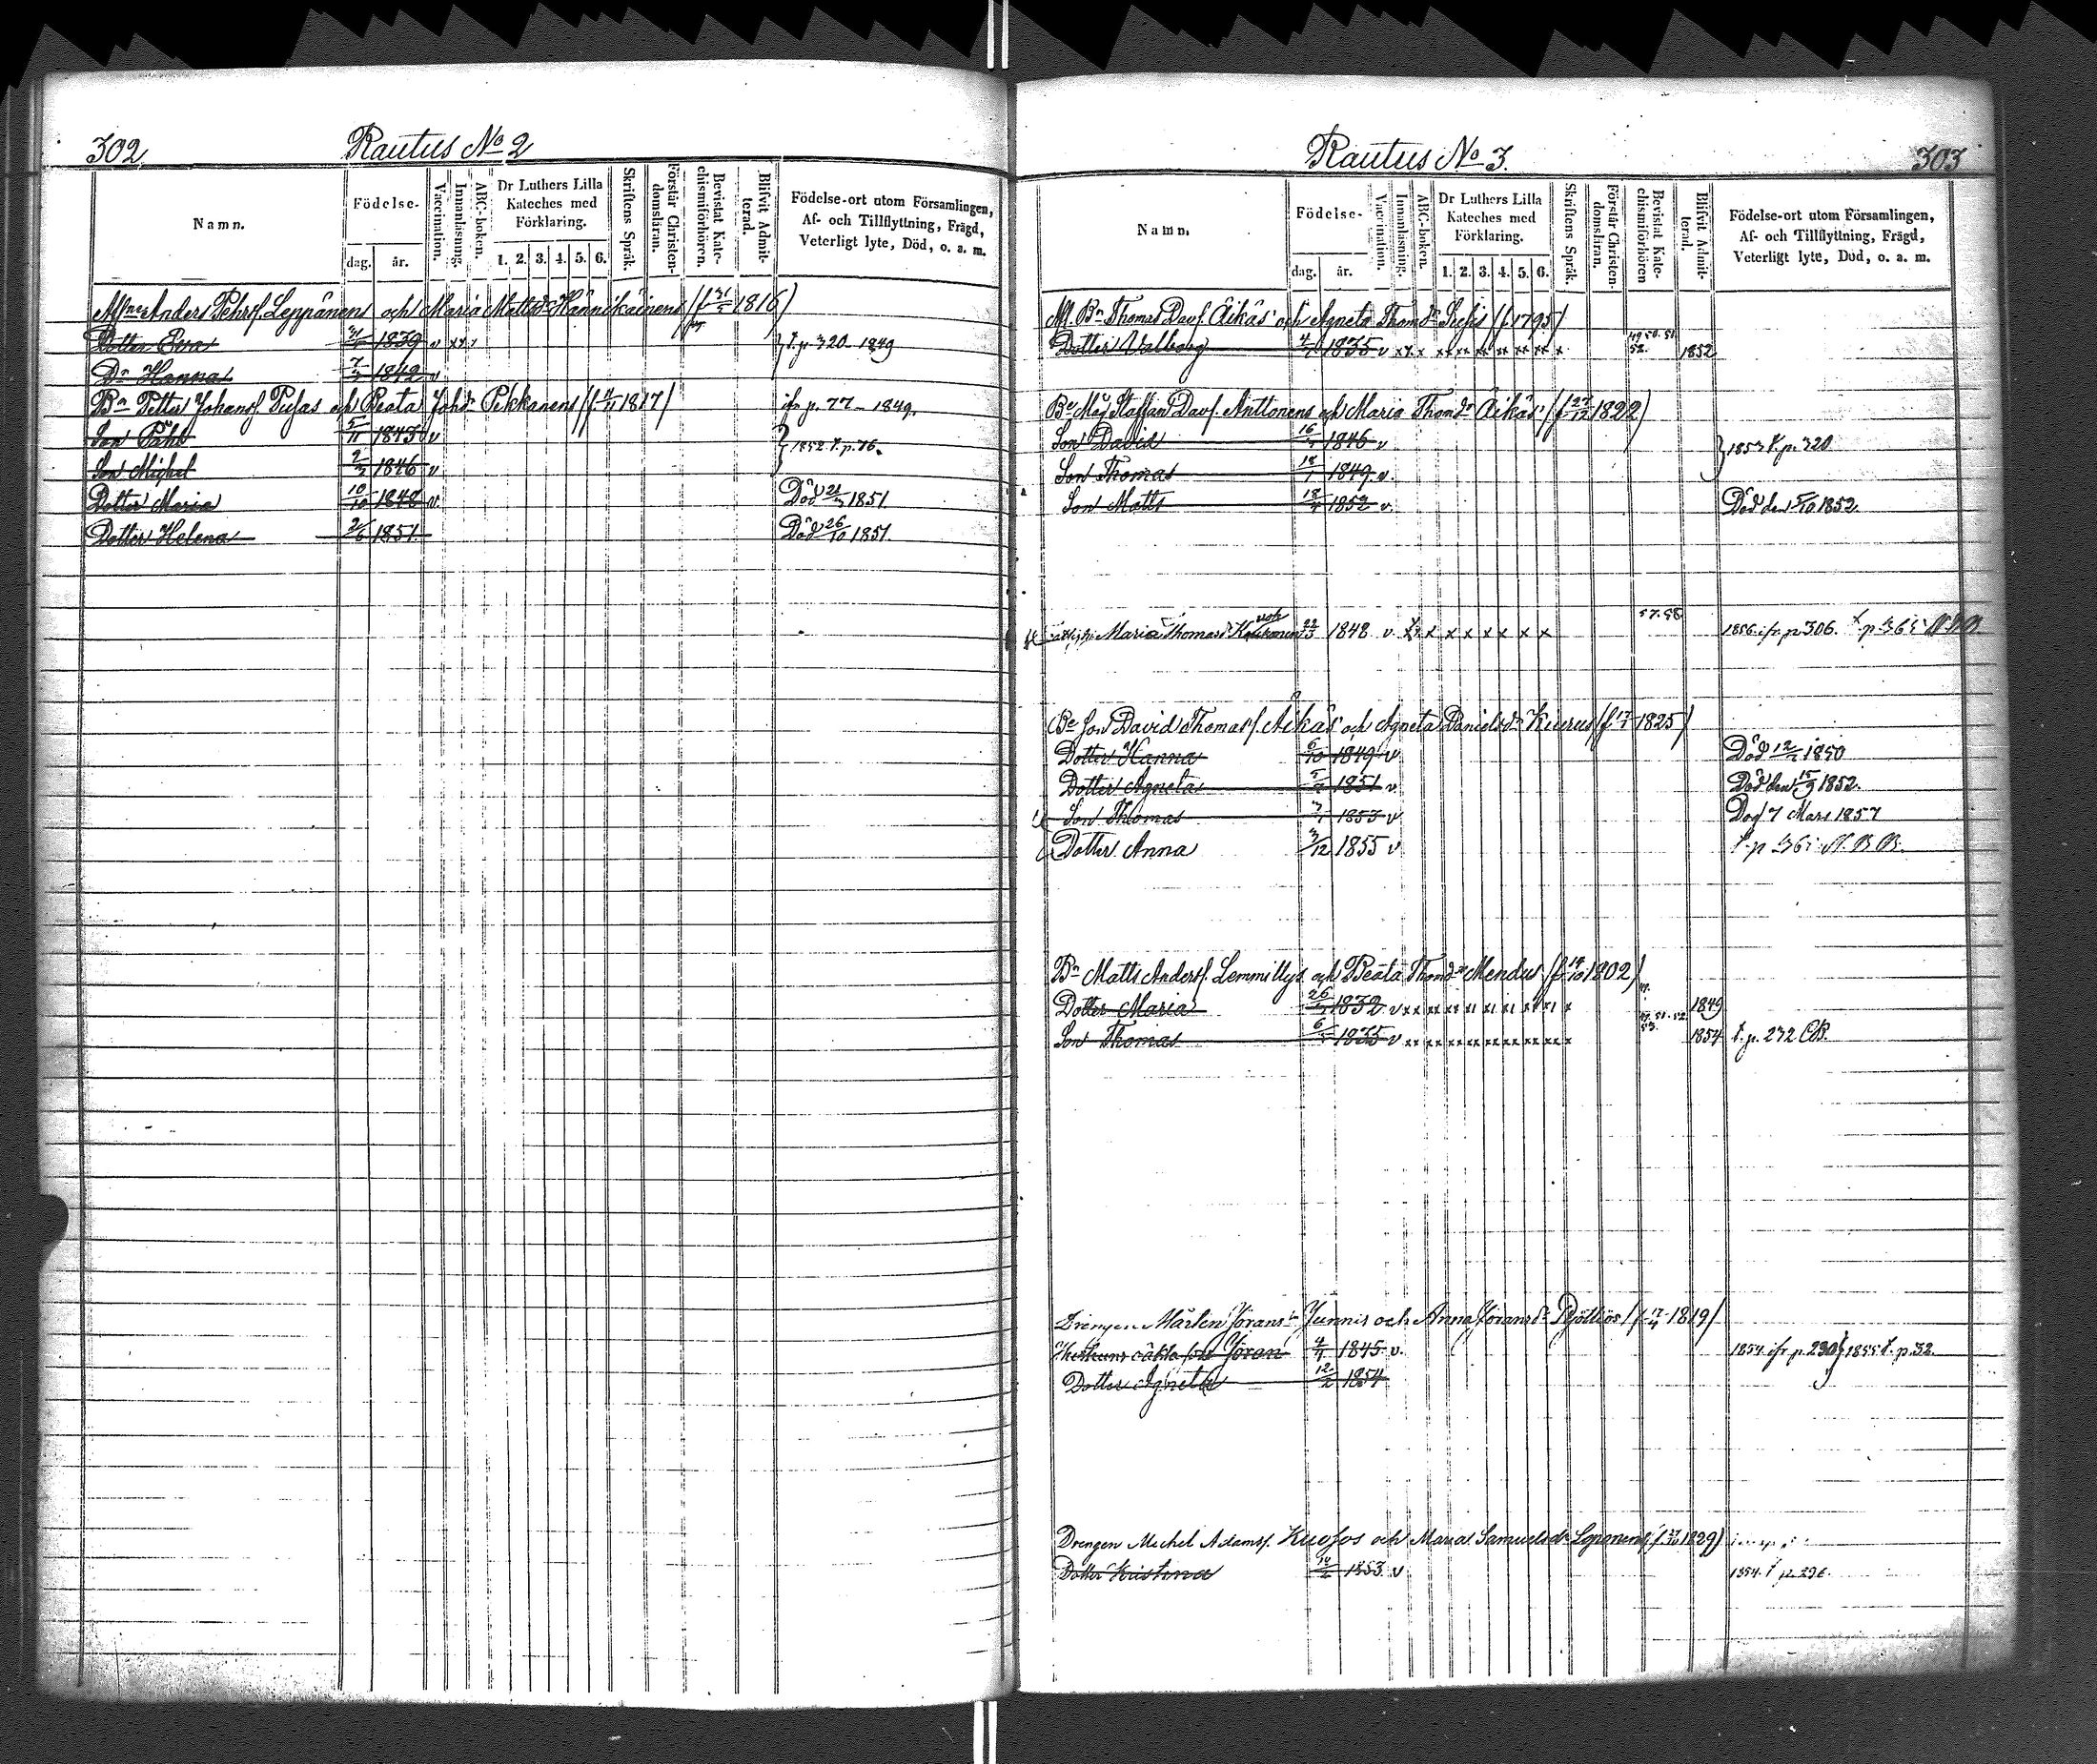 302
Rautus No 2
Namn.
Födelse-
dag.
år.
Vaccination.
Innanläsning.
ABC-boken.
Dr Luthers Lilla Kateches med Förklaring.
1. 2. 3. 4. 5. 6.
Skriftens Språk.
Förstår Christendomsläran.
Bevistat Katechismiförhören.
Blifvit Admitterad.
Födelse-ort utom Församlingen, Af- och Tillflyttning, Frägd, Veterligt lyte, Död, o. a. m.
Anders Pehrs. Leppänens och Maria Mattsdr Hännikäinens 1816)
Dotter Eva 1839 v t. p. 320 1849
Dr Hanna 7/7 1842 v
Bn Petter Johans. Pusas och Beata Johdr Pekkanens 1817) ifr p. 77 - 1849.
Son Påhl 5/11 1843 v 1852 t. p. 76.
Son Michel 2/3 1846 v
Dotter Maria 10/10 1848 v. Död 1851.
Dotter Helena 2/6 1851 Död 26/10 1851.
Rautus No 3.
303
Namn.
Födelse-
dag.
år.
Vaccination.
Innanläsning.
ABC-boken.
Dr Luthers Lilla Kateches med Förklaring.
1. 2. 3. 4. 5. 6.
Skriftens Språk.
Förstår Christendomsläran.
Bevistat Katechismiförhören
Blifvit Admitterad.
Födelse-ort utom Församlingen, Af- och Tillflyttning, Frägd, Veterligt lyte, Död, o. a. m.
Bn Thomas Davs. Äikäs och Agneta Thomdr (f. 1795)
Dotter Valborg 1835 v 49 50. 51. 52. 1852
Be Måg Staffan Davs. Anttonens och Maria Thomdr Äikäs (f. 27/12 1822)
Son David 1846 v 1853 t. p. 320
Son Thomas 18/1 1849 v.
Son Matts 1852 v. Död den 5/10 1852.
Maria Thomasdr 1848 v. x x x x x x x x 57. 58 1856 ifr p. 306. t p 365 N.B.B.
Be Son David Thomas s. Äikäs och Agneta Danielsdr Kurus 1825)
Dotter Hanna 6/10 1849 v Död 1850
Dotter Agneta 1851 v Död den 15/9 1852.
Son Thomas 1853 v Död 7 Mars 1857
Dotter Anna 3/12 1855 v t p 365 N.B.B.
Bn Matts Anders s. Lemmittys och Beata Thomdr Mendus (f. 14/10 1802)
Dotter Maria 1832 v 1849
Son Thomas 1835 v 1854 t. p. 232 CB.
Drengen Mårten Jörans s. Junnis och Anna Jöransdr 1819)
Hustruns oäkta son Jöran 1845 v. 1854 ifr p. 230 1855 t. p. 32.
Dotter Agneta 12/2 1854
Drengen Michel Adams s. Kuosos och Maria Samuelsdr Loponens 1829)
Dotter Kristina 1853 v 1854. t p.